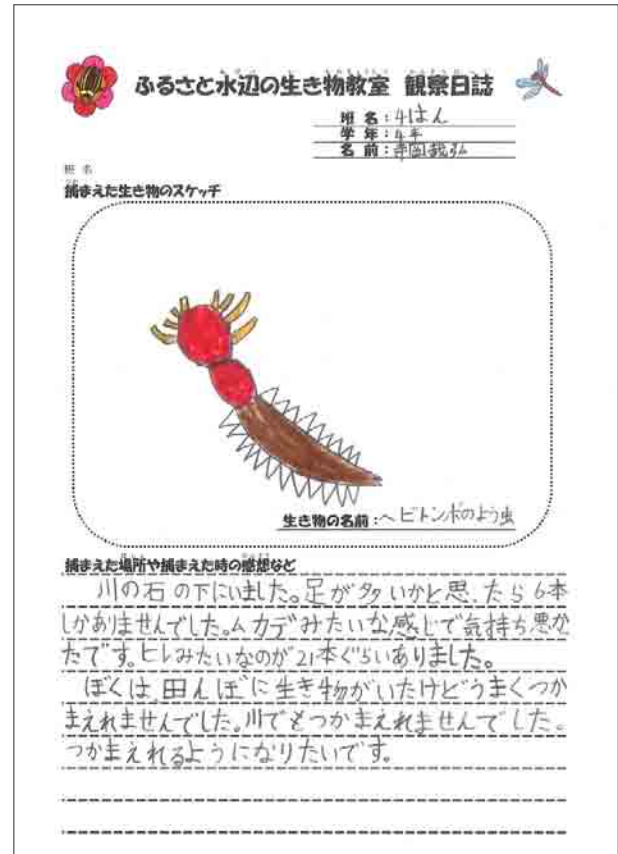 ふるさと水辺の生き物教室 観察日誌
班 名：4はん
学 年：4年
名 前：寺岡哉弘
班 名
捕まえた生き物のスケッチ
生き物の名前：ヘビトンボのよう虫
捕まえた場所や捕まえた時の感想など
川の石の下にいました。足が多いかと思ったら6本
しかありませんでした。ムカデみたいな感じで気持ち悪か
たです。ヒレみたいなのが21本ぐらいありました。
ぼくは、田んぼに生き物がいたけどうまくつか
まえれませんでした。川でもつかまえれませんでした。
つかまえれるようになりたいです。